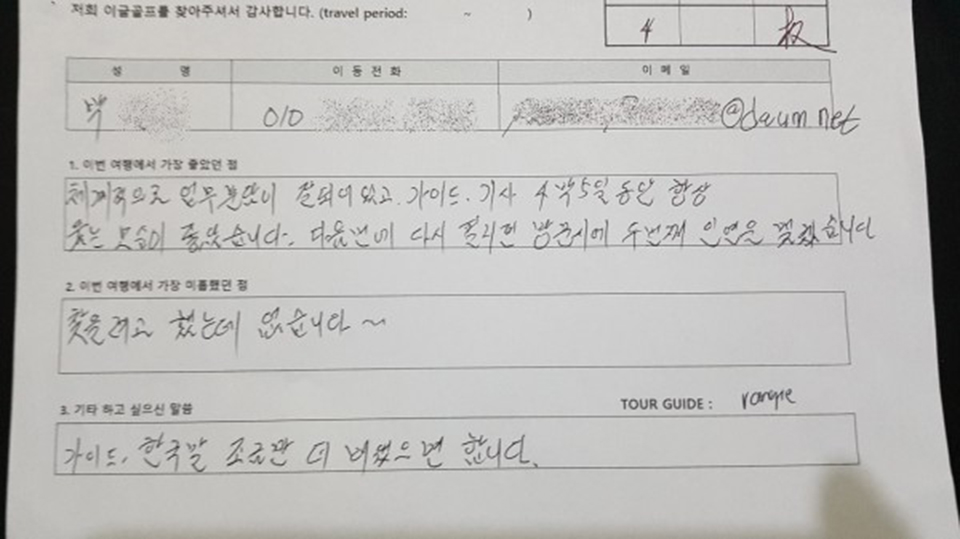 저희 이글골프를 찾아주셔서 감사합니다. (travel period: ~ )
4
성 명 이 동 전 화 이 메 일
백 010 @daum.net
1. 이번 여행에서 가장 좋았던 점
체계적으로 업무분담이 잘되어있고. 가이드. 기사 4박5일동안 항상
웃는 모습이 좋았습니다. 다음번에 다시 필리핀 방문시에 두번째 인연을 맺겠습니다
2. 이번 여행에서 가장 미흡했던 점
찾을려고 했는데 없습니다~
3. 기타 하고 싶으신 말씀 TOUR GUIDE :
가이드. 한국말 조금만 더 배웠으면 합니다.